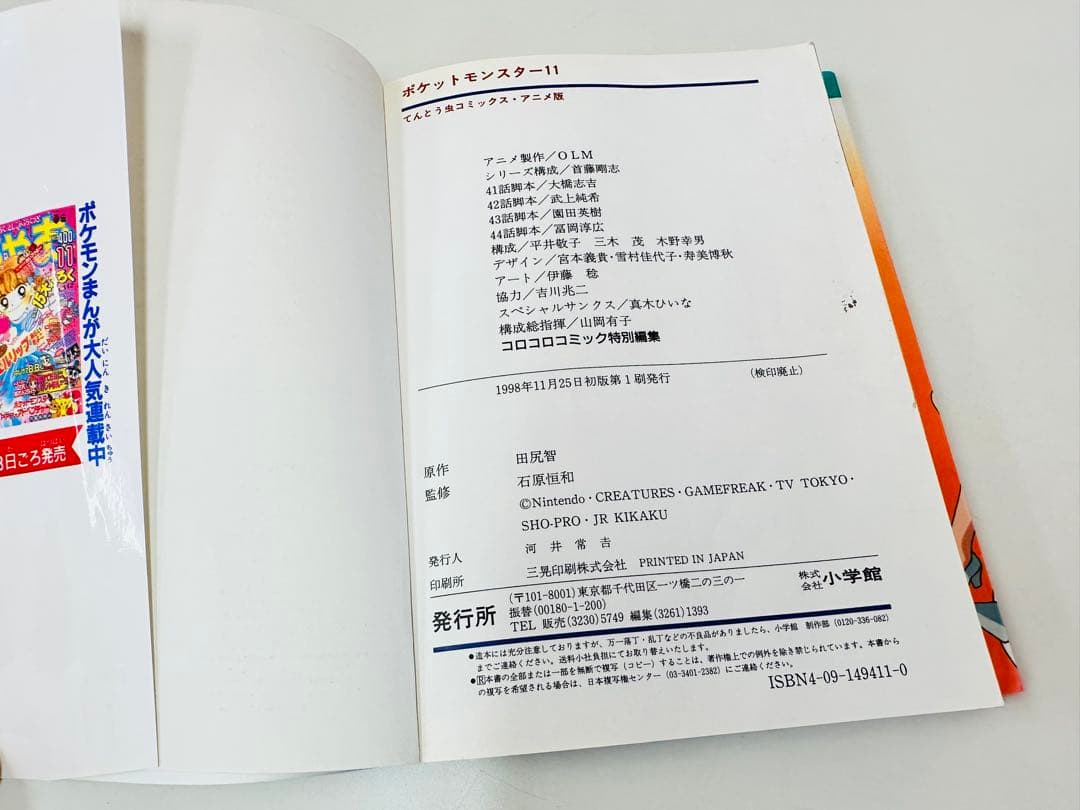 ポケモンまんが大人気連載中
だいにんきれんさいちゅう
8日ごろ発売
ポケットモンスター11
てんとう虫コミックス・アニメ版
アニメ製作／OLM
シリーズ構成／首藤剛志
41話脚本／大橋志吉
42話脚本／武上純希
43話脚本／園田英樹
44話脚本／冨岡淳広
構成／平井敬子 三木 茂 木野幸男
デザイン／宮本義貴・雪村佳代子・寿美博秋
アート／伊藤 稔
協力／吉川兆二
スペシャルサンクス／真木ひいな
構成総指揮／山岡有子
コロコロコミック特別編集
1998年11月25日初版第1刷発行 (検印廃止)
原作 田尻智
監修 石原恒和
©Nintendo・CREATURES・GAMEFREAK・TV TOKYO・
SHO-PRO・JR KIKAKU
発行人 河井常吉
印刷所 三晃印刷株式会社 PRINTED IN JAPAN
発行所 (〒101-8001)東京都千代田区一ツ橋二の三の一 株式会社 小学館
振替(00180-1-200)
TEL 販売(3230)5749 編集(3261)1393
●造本には充分注意しておりますが、万一落丁・乱丁などの不良品がありましたら、小学館 制作部(0120-336-082)
までご連絡ください。送料小社負担にてお取り替えいたします。
●Ⓡ本書の全部または一部を無断で複写(コピー)することは、著作権法上での例外を除き禁じられています。本書から
の複写を希望される場合は、日本複写権センター(03-3401-2382)にご連絡ください。
ISBN4-09-149411-0